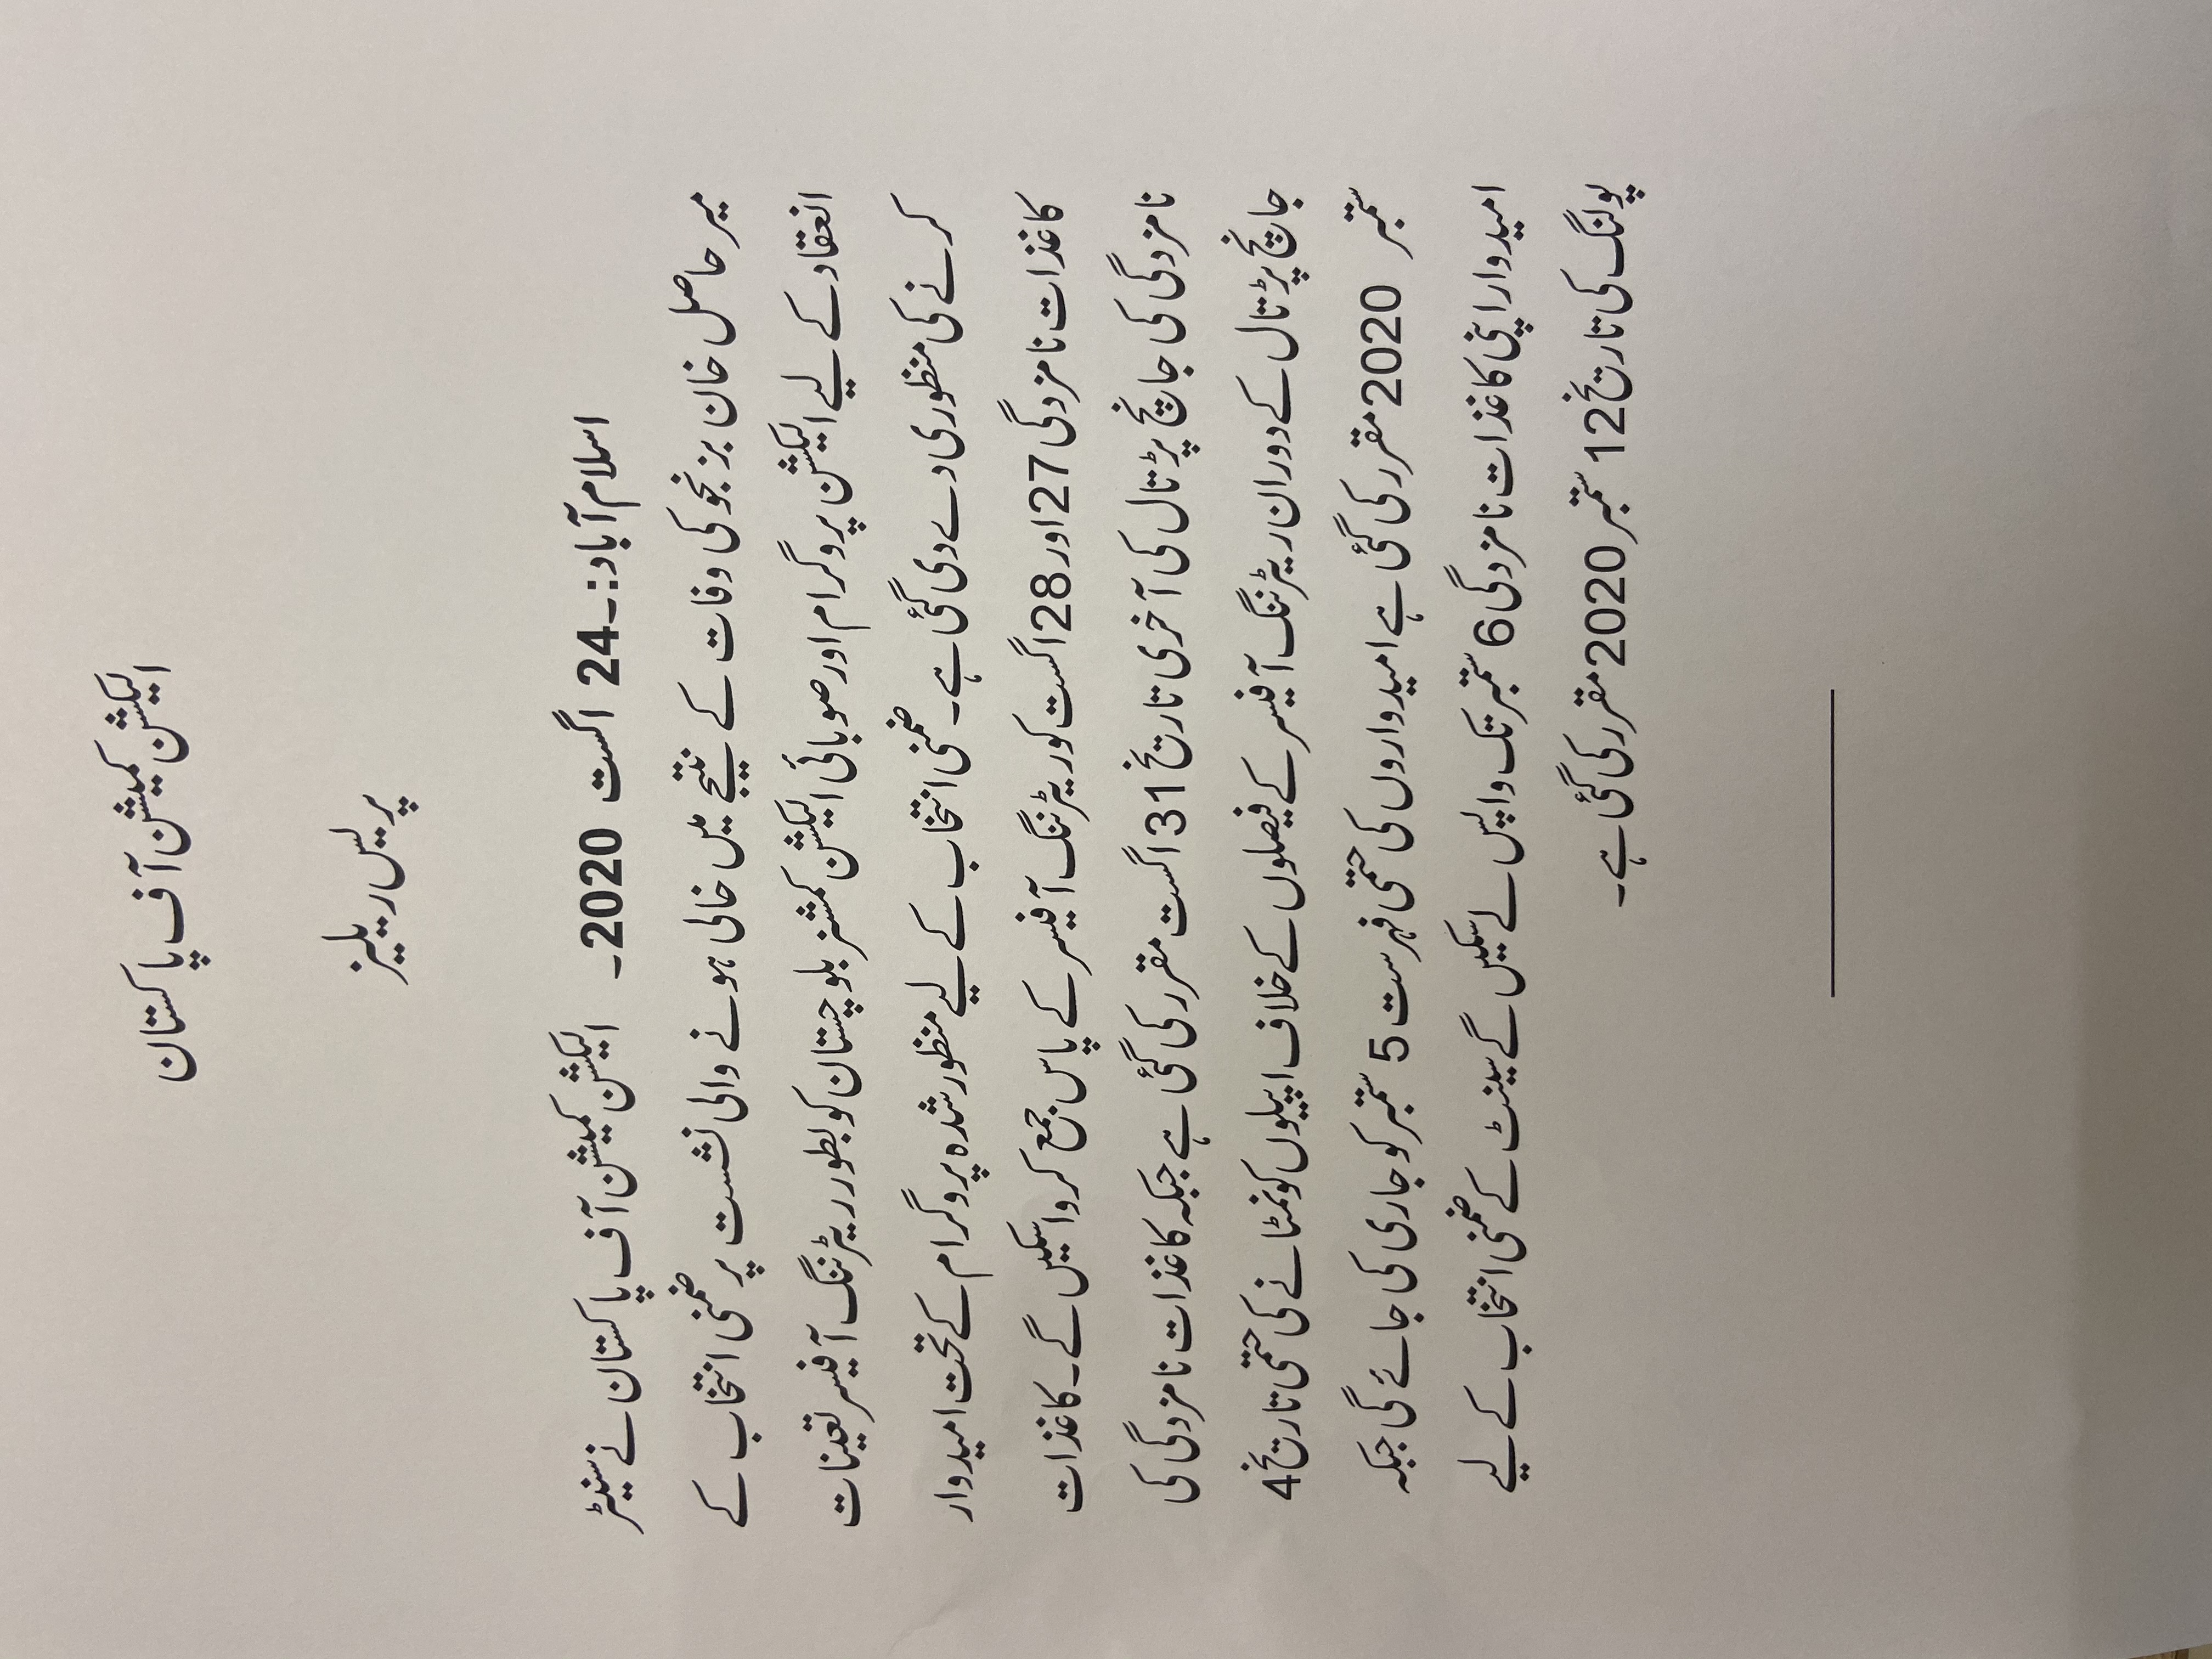 الیکشن کمیشن آف پاکستان
پریس ریلیز
اسلام آباد:۔24 اگست 2020۔ الیکشن کمیشن آف پاکستان نے سینیٹر
میر حاصل خان بزنجو کی وفات کے نتیجے میں خالی ہونے والی نشست پر ضمنی انتخاب کے
انعقاد کے لیے الیکشن پروگرام اور صوبائی الیکشن کمشنر بلوچستان کو بطور ریٹرننگ آفیسر تعینات
کرنے کی منظوری دے دی گئی ہے۔ ضمنی انتخاب کے لیے منظور شدہ پروگرام کے تحت امیدوار
کاغذات نامزدگی 27 اور 28 اگست کو ریٹرننگ آفیسر کے پاس جمع کروا سکیں گے۔ کاغذات
نامزدگی کی جانچ پڑتال کی آخری تاریخ 31 اگست مقرر کی گئی ہے جبکہ کاغذات نامزدگی کی
جانچ پڑتال کے دوران ریٹرننگ آفیسر کے فیصلوں کے خلاف اپیلوں کو نمٹانے کی حتمی تاریخ 4
ستمبر 2020 مقرر کی گئی ہے امیدواروں کی حتمی فہرست 5 ستمبر کو جاری کی جائے گی جبکہ
امیدوار اپنی کاغذات نامزدگی 6 ستمبر تک واپس لے سکیں گے سینٹ کے ضمنی انتخاب کے لیے
پولنگ کی تاریخ 12 ستمبر 2020 مقرر کی گئی ہے۔